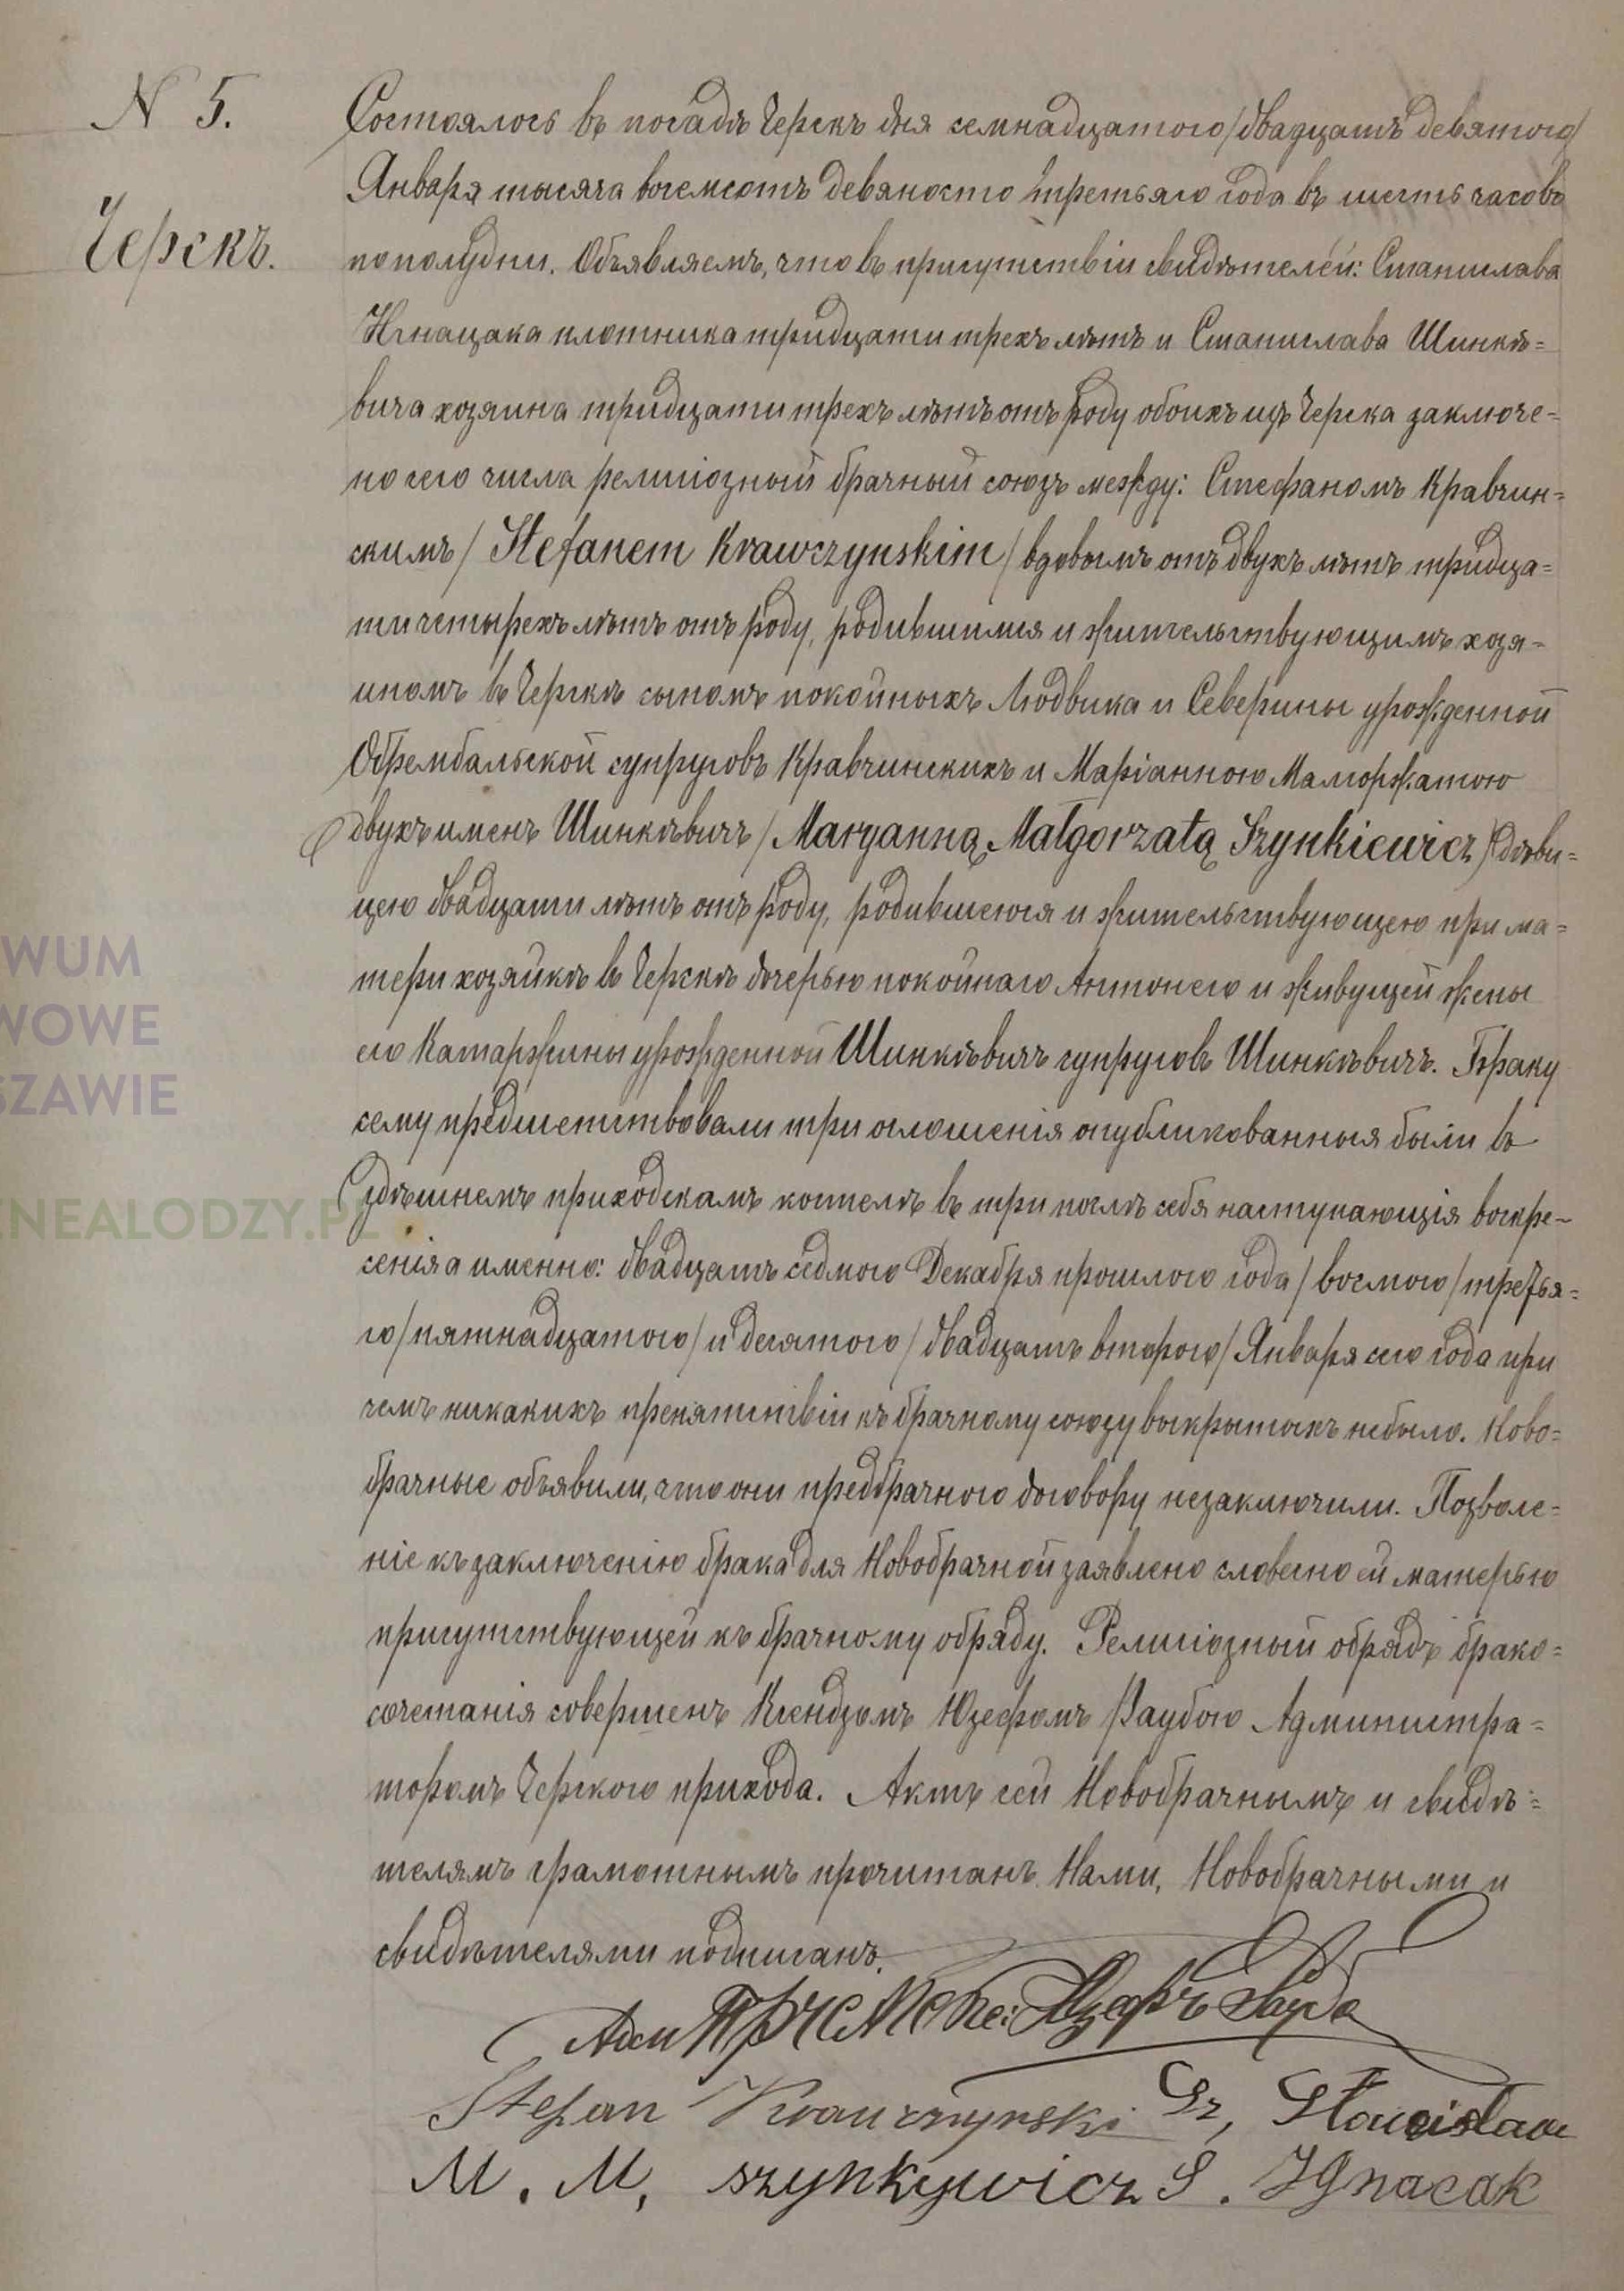 N 5.
Черскъ.
Состоялось въ посадѣ Черскъ дня семнадцатого /двадцать девятого/
Января тысяча восемсотъ девяносто третьяго года въ шесть часовъ
пополудни. Объявляемъ, что въ присутствіи свидѣтелей: Станислава
Игнацака плотника тридцати трехъ лѣтъ и Станислава Шинкѣ=
вича хозяина тридцати трехъ лѣтъ отъ роду обоихъ изъ Черска заключе=
но сего числа религіозный брачный союзъ между: Стефаномъ Кравчин=
скимъ / Stefanem Krawczynskim / вдовымъ отъ двухъ лѣтъ тридца=
ти четырехъ лѣтъ отъ роду, родившимся и жительствующимъ хозя=
иномъ въ Черскѣ сыномъ покойныхъ Людвика и Северины урожденной
Обрембальской супруговъ Кравчинскихъ и Маріанною Малгоржатою
двухъ именъ Шинкѣвичъ / Maryanną Małgorzatą Szynkiewicz / дѣви=
цею двадцати лѣтъ отъ роду, родившеюся и жительствующею при ма=
тери хозяйкѣ въ Черскѣ дочерью покойнаго Антонего и живущей жены
его Катаржины урожденной Шинкѣвичъ супруговъ Шинкѣвичъ. Браку
сему предшествовали три оглошенія опубликованныя были въ
здѣшнемъ приходскамъ костелѣ въ три послѣ себя наступающія воскре=
сенія а именно: двадцать седмого Декабря прошлого года / восмого / третья=
го / пятнадцатого / и десятого / двадцать второго / Января сего года при
чемъ никакихъ препятствіи къ брачному союзу вскрытыхъ небыло. Ново=
брачные объявили, что они предбрачного договору незаключили. Позволе=
ніе къ заключенію брака для Новобрачной заявлено словесно ей матерью
присутствующей къ брачному обряду. Религіозный обрядъ брако=
сочетанія совершенъ Ксендзомъ Юзефомъ Раубою Администра=
торомъ Черского прихода. Актъ сей Новобрачнымъ и свидѣ=
телямъ грамотнымъ прочитанъ Нами, Новобрачными и
свидѣтелями подписанъ.
Юзефъ Рауба
Stefan Krawczynski Sz, Stanisław
M. M, szynkywicz S. IGnacak